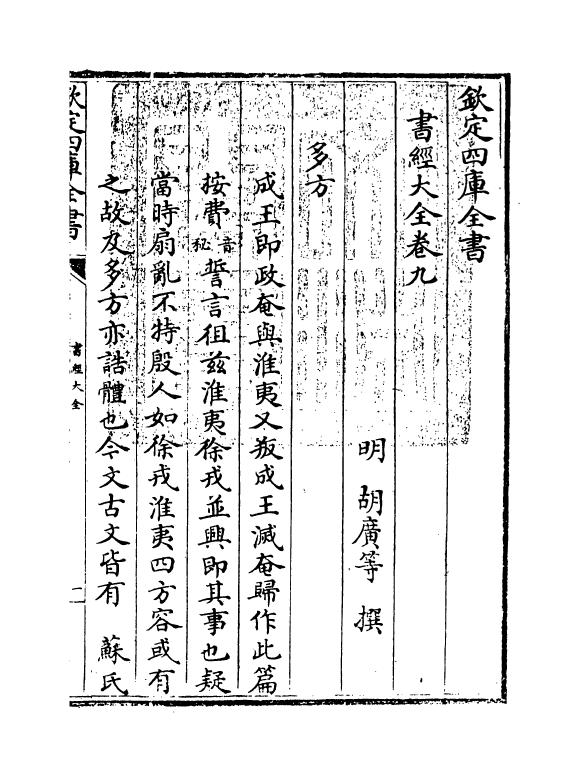 欽定四庫全書
書經大全卷九
明　胡廣等　撰
多方
成王即政奄與淮夷又叛成王滅奄歸作此篇
按費音秘誓言徂兹淮夷徐戎並興即其事也疑
當時扇亂不特殷人如徐戎淮夷四方容或有
之故及多方亦誥體也今文古文皆有　蘇氏
欽定四庫全書
書經大全